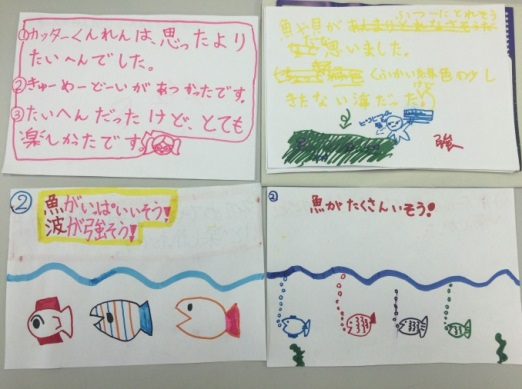 ①カッターくんれんは、思ったより
たいへんでした。
②きゅーめーどーいがあつかったです。
③たいへんだったけど、とても
楽しかったです
ふつーにとれそう
魚や貝が
など思いました。
きたない海だった
②
魚がいっぱいいそう!
波が強そう!
②
魚がたくさんいそう!